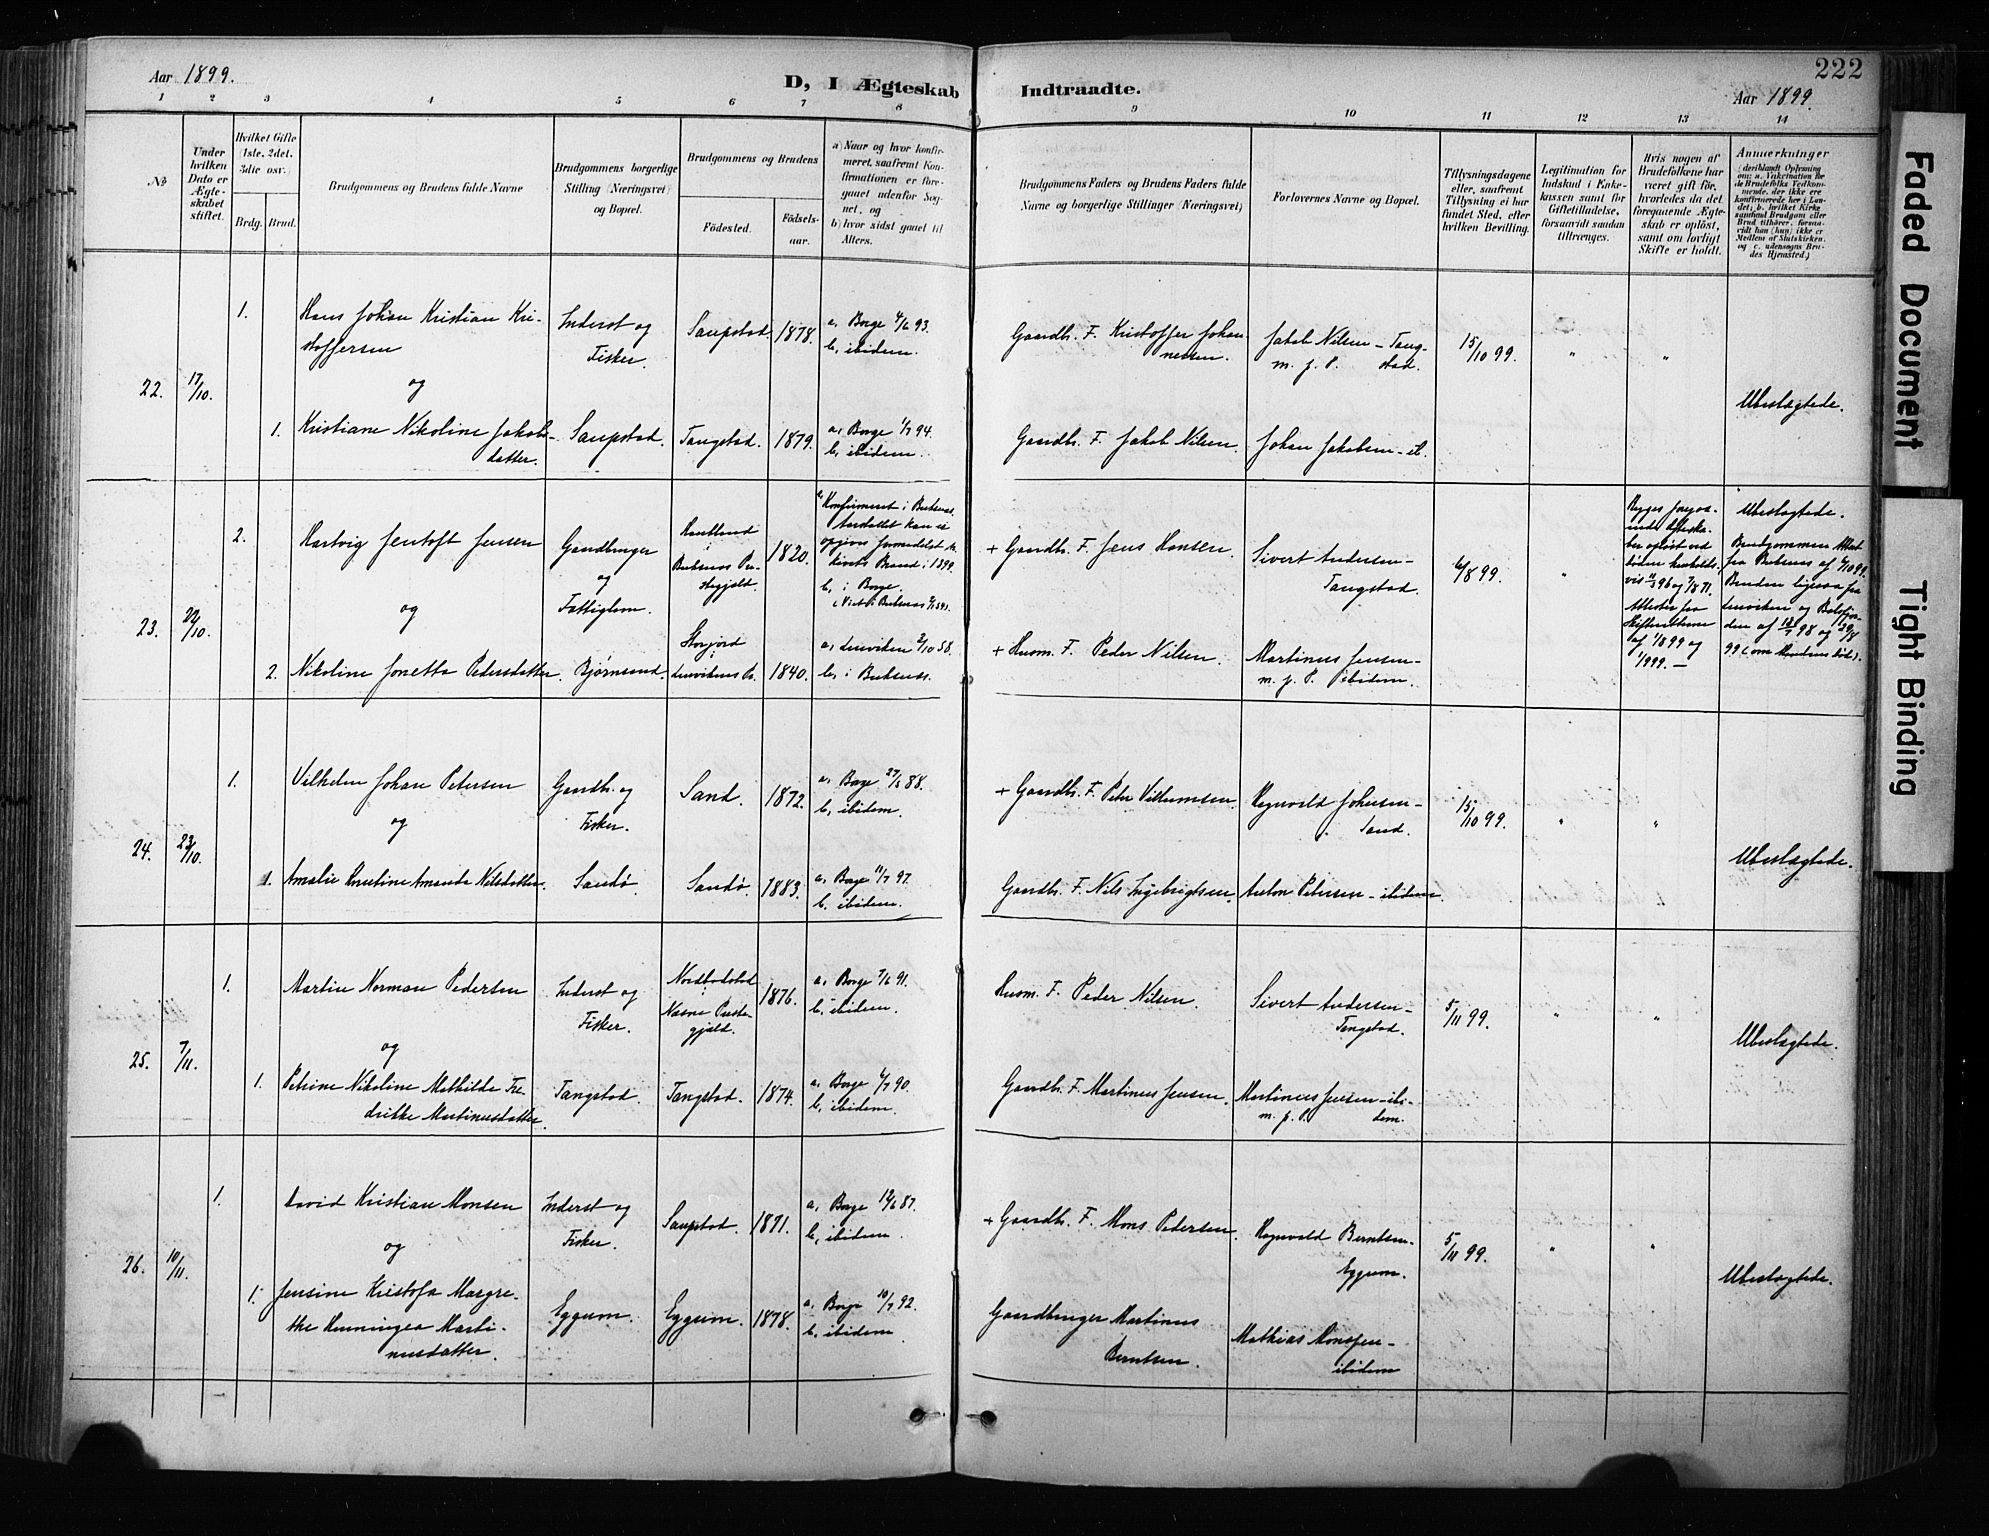 222
Aar 1899.
D, I Ægteskab Indtraadte.
Aar 1899.
1 2 3 4 5 6 7 8 9 10 11 12 13 14
No
Under hvilken Dato er Ægteskabet stiftet.
Hvilket Gifte (1ste, 2det, 3die osv.)
Brdg. Brud.
Brudgommens og Brudens fulde Navne
Brudgommens borgerlige Stilling (Næringsvei) og Bopæl.
Brudgommens og Brudens
Fødested.
Fødselsaar.
a) Naar og hvor konfirmeret, saafremt Konfirmationen er foregaaet udenfor Sognet, og
b) hvor sidst gaaet til Alters.
Brudgommens Faders og Brudens Faders fulde Navne og borgerlige Stillinger (Næringsvei)
Forlovernes Navne og Bopæl.
Tillysningsdagene eller, saafremt Tillysning ei har fundet Sted, efter hvilken Bevilling.
Legitimation for Indskud i Enkekassen samt for Giftetilladelse, forsaavidt saadan tiltrænges.
Hvis nogen af Brudefolkene har været gift før, hvorledes da det foregaaende Ægteskab er opløst, samt om lovligt Skifte er holdt.
Anmærkninger
(deriblandt Oplysning om: a. Vakcination for de Brudefolks Vedkommende, der ikke ere konfirmerede her i Landet; b. hvilket Kirkesamfund Brudgom eller Brud tilhører, forsaavidt han (hun) ikke er Medlem af Statskirken, og c. udensogns Brudes Hjemsted.)
22. 17/10.
1. Hans Johan Kristian Kristoffersen
Inderst og Fisker.
Saupstad 1878.
a, Borge 4/6 93.
b, ibidem.
Gaardb. F. Kristoffer Johannessen.
Jakob Nilsen - Tangstad.
m. p. P.
15/10 99.
" "
og
1. Kristiane Nikoline Jakobsdatter.
Saupstad. Tangstad. 1879.
a, Borge 1/7 94.
b, ibidem.
Gaardb. F. Jakob Nilsen.
Johan Jakobsen - ib.
Ubeslægtede.
23. 22/10.
2. Hartvig Jentoft Jensen
Gaardbruger og Fattiglem.
i Buksnes Præstegjeld
1820.
a, Konfirmeret i Buksnes.
b, i Borge.
+ Gaardb. F. Jens Hansen.
Sivert Andersen - Tangstad.
6/8 99.
"
og
2. Nikoline Jonetta Pedersdatter.
Bjørnsand.
Storjord i
1840.
b, i Buksnes.
+ Husm. F. Peder Nilsen.
Martinus Jensen -
m. p. P. ibidem.
Ubeslægtede.
24. 23/10.
1. Vilhelm Johan Petersen
Gaardb. og Fisker.
Sand. 1872.
a, Borge 27/5 88.
b, ibidem.
+ Gaardb. F. Peter Villumsen.
Ragnvald Johnsen - Sand.
15/10 99.
" "
og
1. Amalie Knutine Amanda Nilsdatter.
Sandø. Sandø. 1883.
a, Borge 11/7 97.
b, ibidem.
Gaardb. F. Nils Ingebrigtsen.
Anton Petersen - ibidem.
Ubeslægtede.
25. 7/11.
1. Martin Norman Pedersen
Inderst og Fisker.
i Næsne Præstegjeld.
1876.
a, Borge 7/6 91.
b, ibidem.
Husm. F. Peder Nilsen.
Sivert Andersen - Tangstad.
5/11 99.
" "
og
1. Petrine Nikoline Mathilde Fredrikke Martinusdatter.
Tangstad. Tangstad. 1874.
a, Borge 6/7 90.
b, ibidem.
Gaardb. F. Martinus Jensen.
Martinus Jensen - ibidem.
m. p. P.
Ubeslægtede.
26. 10/11.
1. David Kristian Monsen
Inderst og Fisker.
Saupstad. 1871.
a, Borge 12/6 87.
b, ibidem.
+ Gaardb. F. Mons Pedersen.
Ragnvald Berntsen - Eggum.
5/11 99.
" "
og
1. Jensine Kristofa Margrethe Henningea Martinusdatter.
Eggum. Eggum. 1878.
a, Borge 10/7 92.
b, ibidem
Gaardbruger Martinus Berntsen.
Mathias Monssen - ibidem
Ubeslægtede.
Faded Document
Tight Binding